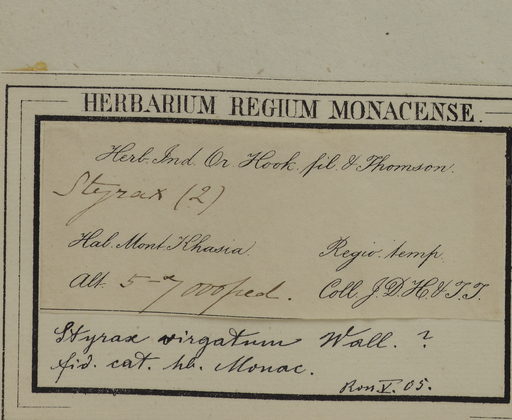 HERBARIUM REGIUM MONACENSE.
Herb. Ind. Or. Hook. fil. & Thomson.
Styrax (2)
Hab. Mont. Khasia. Regio. temp.
Alt. 5-7000 ped. Coll. J. D. H. & T. T.
Styrax virgatum Wall. ?
fid. cat. hb. Monac.
V. 05.